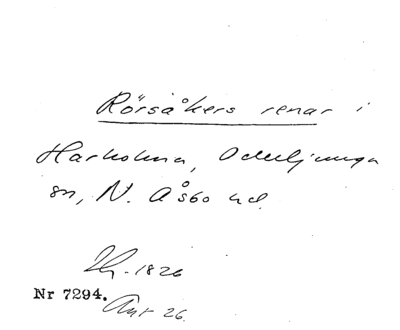 Rörsåkers renar i
Harholma, Oderljunga
sn, N. Åsbo hd.
Th. 1826
Nr 7294.
Ant 26.